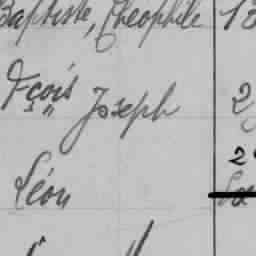 Baptiste, Théophile 1
Fçois Joseph 2
2
Léon